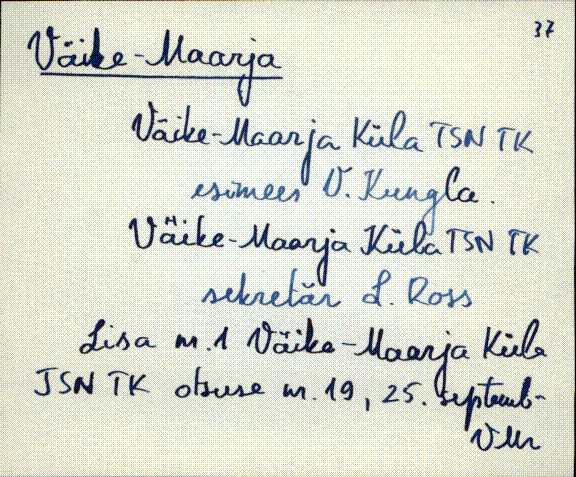 37
Väike-Maarja
Väike-Maarja Küla TSN TK
esimees V. Kungla.
Väike-Maarja Küla TSN TK
sekretär L. Ross
Lisa nr. 1 Väike-Maarja Küla
TSN TK otsuse nr. 19, 25. septemb-